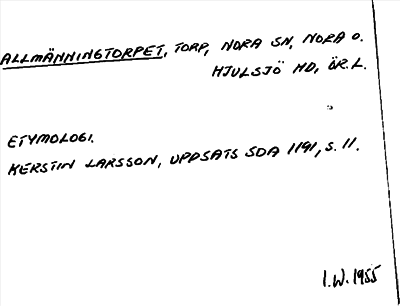 ALLMÄNNINGTORPET, TORP, NORA SN, NORA O.
HJULSJÖ HD, ÖR.L.
ETYMOLOGI.
KERSTIN LARSSON, UPPSATS SDA 1191, S. 11.
I.W. 1955